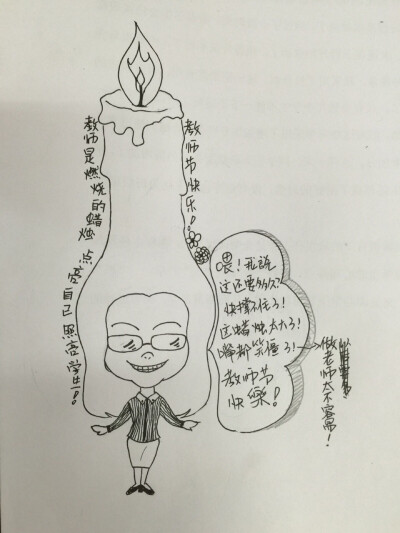 教师是燃烧的蜡烛 点亮自己照亮学生!
教师节快乐!
喂!我說
这还要多久?
快撐不住了!
这蜡烛太大了!
嘴都笑僵了!
教师节
快樂!
做老师太不容易!